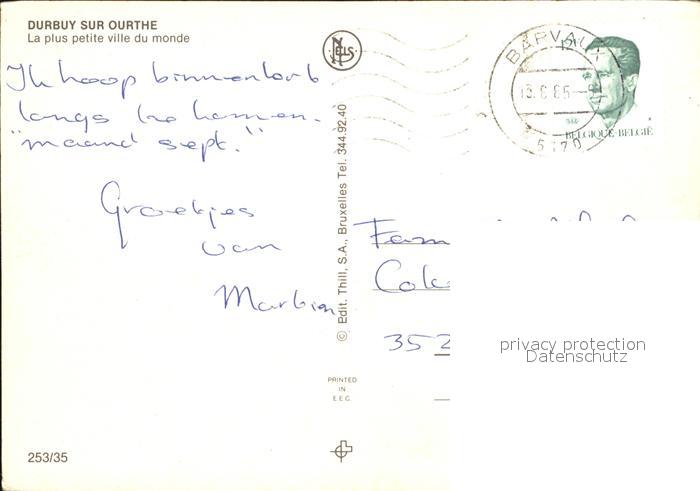 DURBUY SUR OURTHE
La plus petite ville du monde
Ik hoop binnenkort
langs te komen.
"maand sept."
Groetjes
van
NELS
© Edit. Thill, S.A., Bruxelles Tel. 344.92.40
PRINTED
IN
E.E.C.
253/35
BARVAUX
5770
BELGIQUE-BELGIË
Fam
352
privacy protection
Datenschutz